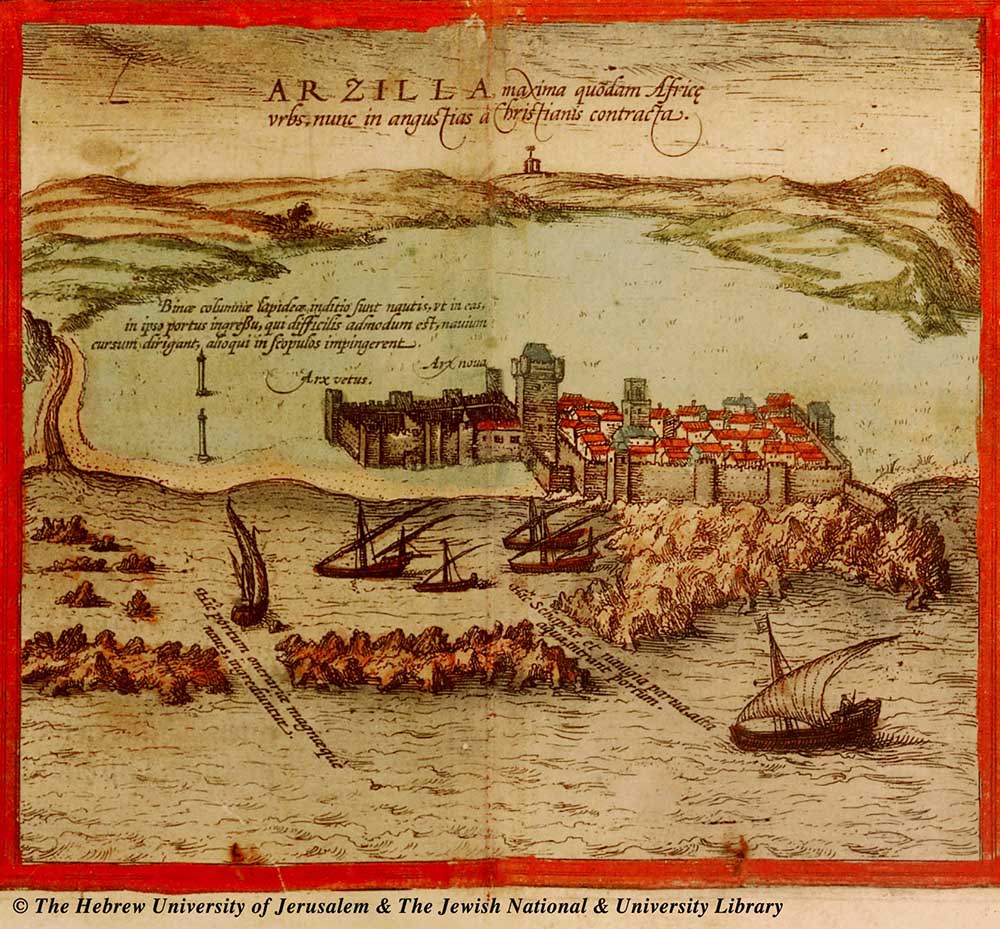 ARZILLA maxima quōdam Africę
vrbs, nunc in angustias à Christianis contracta.
Binæ columniæ lapideæ inditio sunt nautis, vt in eas,
in ipso portus ingreßu, qui difficilis admodum est, nauium
cursum dirigant, alioqui in scopulos impingerent.
Arx nova
Arx vetus.
Hàc portum onerariæ magnæquè
naues ingrediuntur.
Hàc Scaphæ et nauigia parua aliò
portum
© The Hebrew University of Jerusalem & The Jewish National & University Library